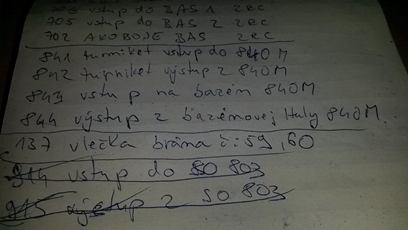 703 vstup do BAS 1 ZRC
705 vstup do BAS 2 ZRC
702 AKOBOJE BAS ZRC
841 turniket vstup do 840 M
842 turniket výstup z 840M
843 vstup na bazén 840M
844 výstup z bazénovej haly 840M.
137 vlečka brána č: 59, 60
914 vstup do SO 803
915 výstup z SO 803